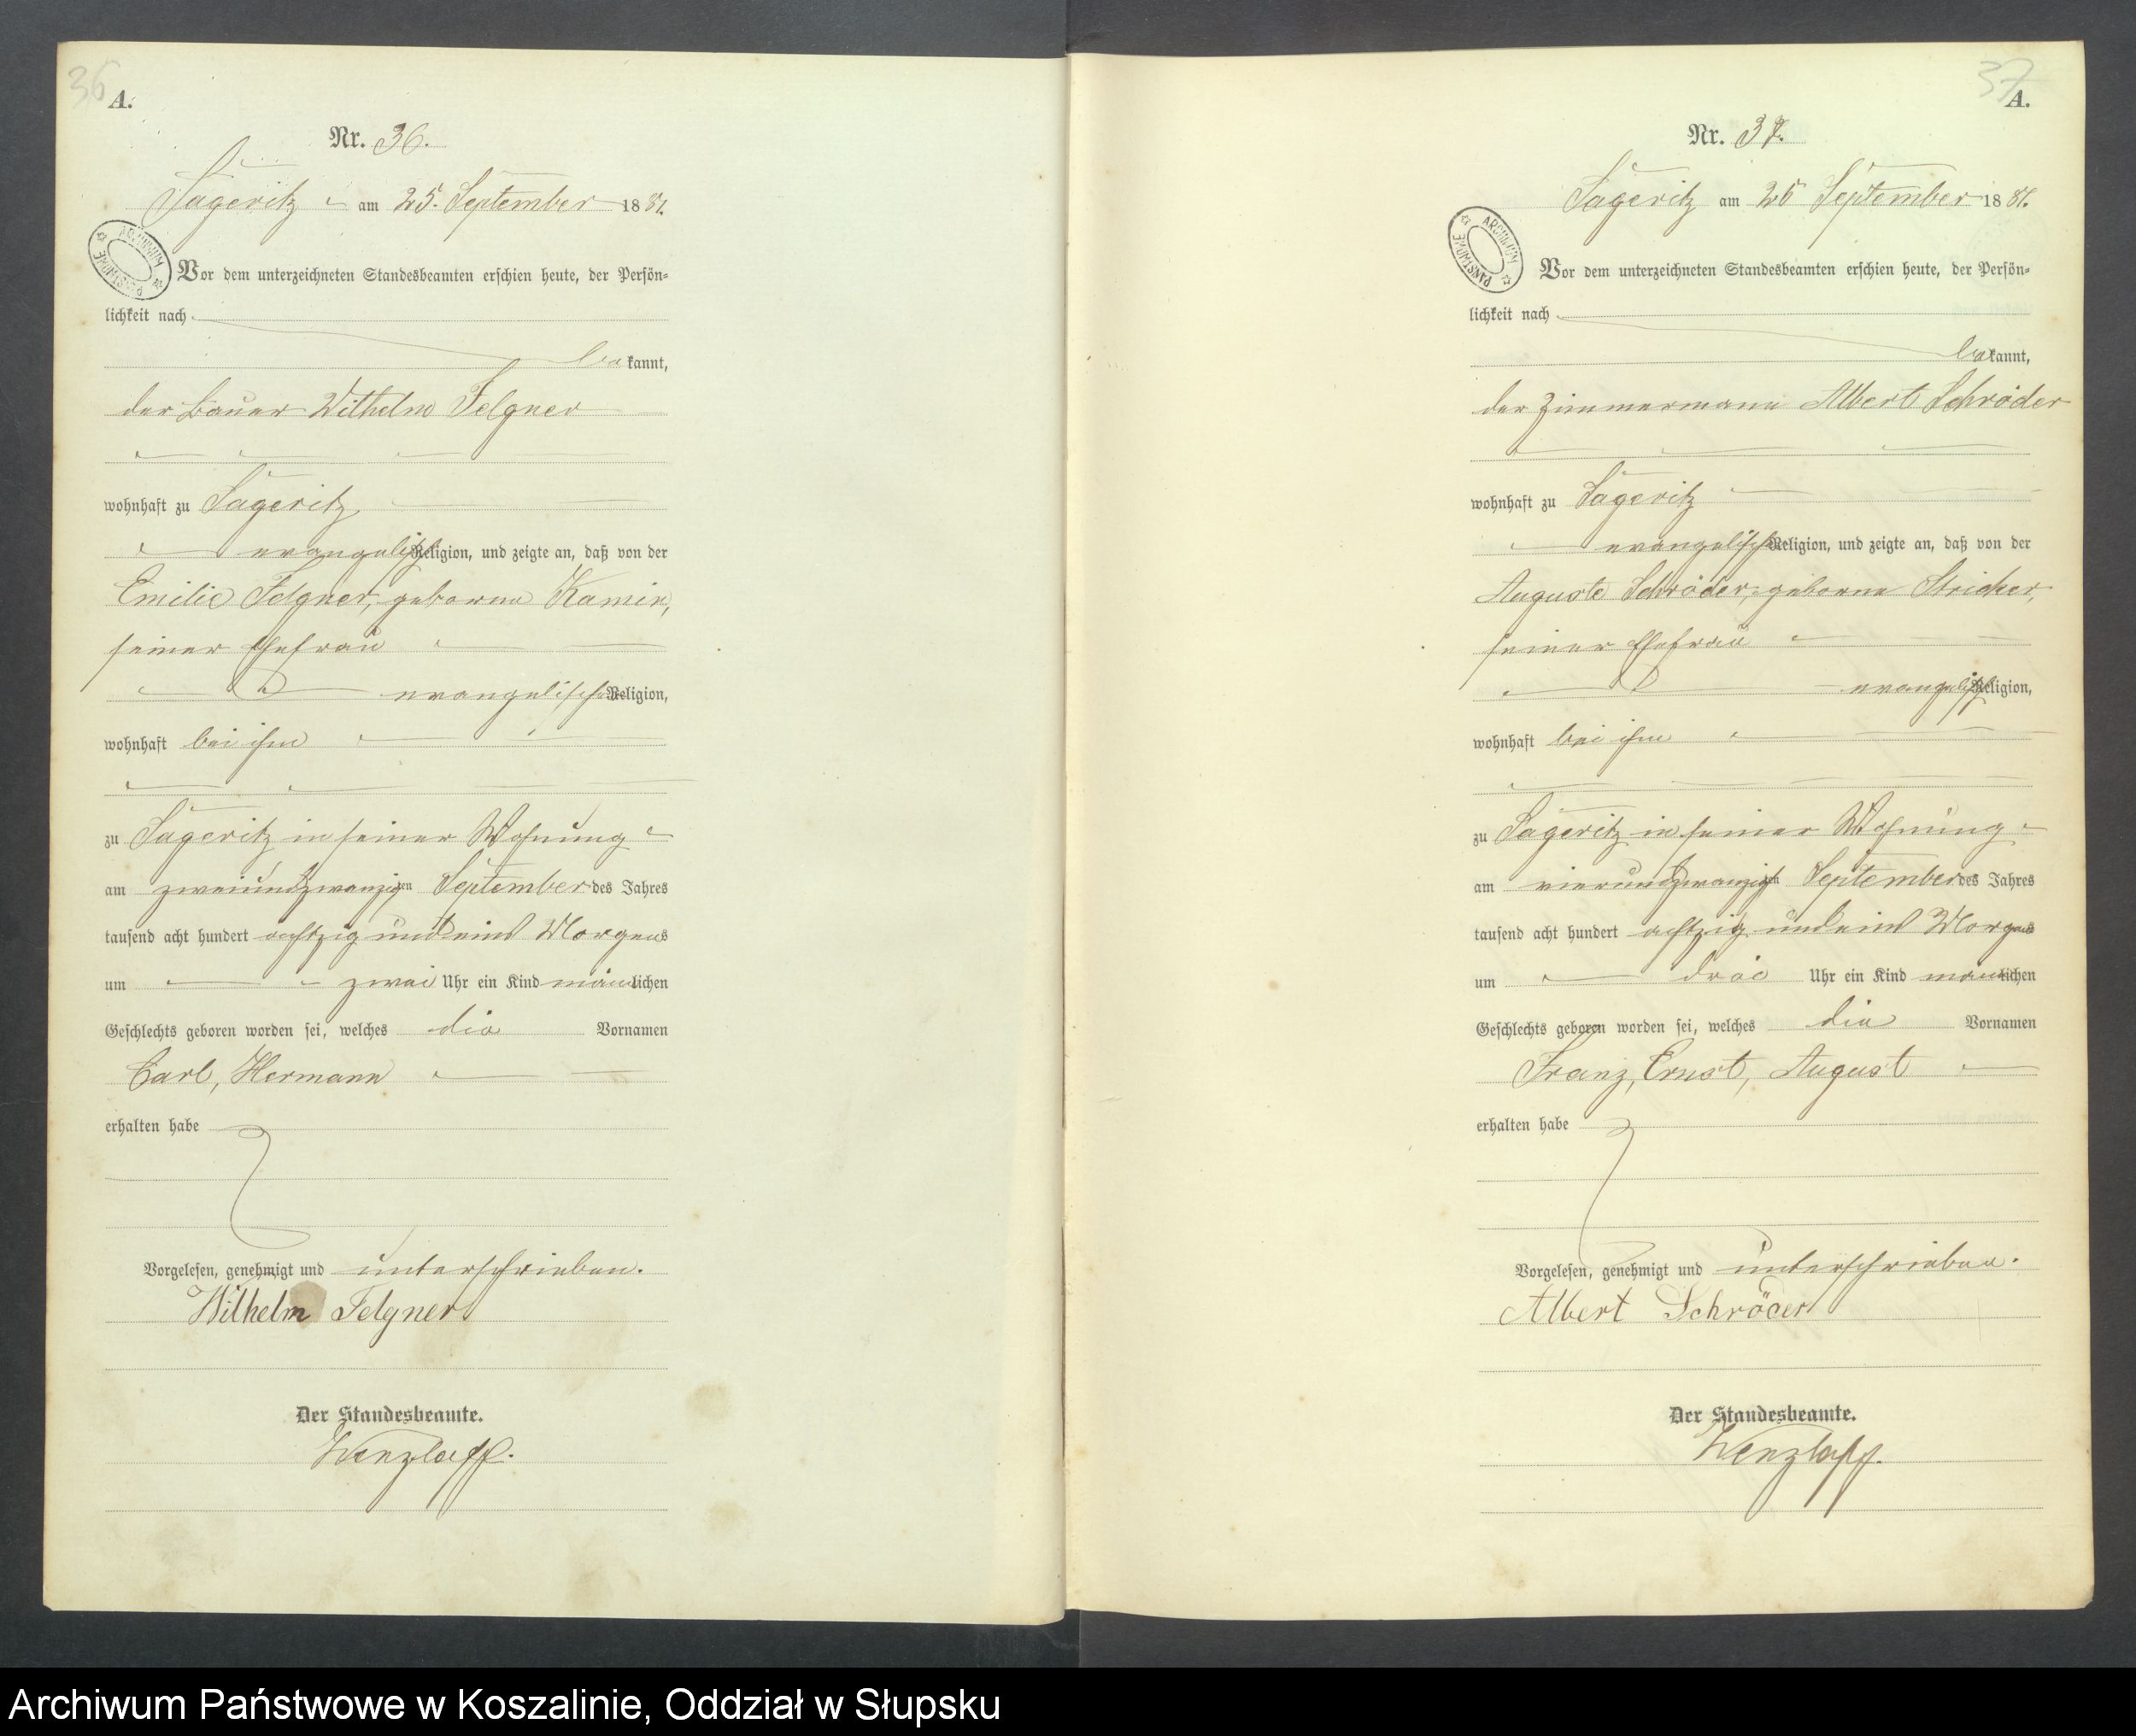 36
A.
Nr. 36.
Sageritz am 25. September 1881.
ARCHIWUM PAŃSTWOWE
Vor dem unterzeichneten Standesbeamten erschien heute, der Persön-
lichkeit nach
bekannt,
der Bauer Wilhelm Felgner
wohnhaft zu Sageritz
evangelischer Religion, und zeigte an, daß von der
Emilie Felgner, geborene Kamin,
seiner Ehefrau
evangelischer Religion,
wohnhaft bei ihm
zu Sageritz in seiner Wohnung
am zweiundzwanzigten September des Jahres
tausend acht hundert achtzig und eins Morgens
um zwei Uhr ein Kind männlichen
Geschlechts geboren worden sei, welches die Vornamen
Carl, Hermann
erhalten habe
Vorgelesen, genehmigt und unterschrieben.
Wilhelm Felgner
Der Standesbeamte.
Wenzlaff.
37
A.
Nr. 37.
Sageritz am 25 September 1881.
ARCHIWUM PAŃSTWOWE
Vor dem unterzeichneten Standesbeamten erschien heute, der Persön-
lichkeit nach
bekannt,
der Zimmermann Albert Schröder
wohnhaft zu Sageritz
evangelischer Religion, und zeigte an, daß von der
Auguste Schröder, geborene Stricker,
seiner Ehefrau
evangelischer Religion,
wohnhaft bei ihm
zu Sageritz in seiner Wohnung
am vierundzwanzigten September des Jahres
tausend acht hundert achtzig und eins Morgens
um drei Uhr ein Kind männlichen
Geschlechts geboren worden sei, welches die Vornamen
Franz, Ernst, August
erhalten habe
Vorgelesen, genehmigt und unterschrieben.
Albert Schröder
Der Standesbeamte.
Wenzlaff.
Archiwum Państwowe w Koszalinie, Oddział w Słupsku